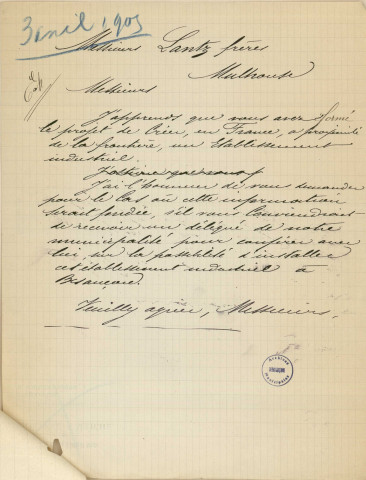 3 avril 1903
Messieurs Lantz frères
Mulhouse
Messieurs
J'apprends que vous avez formé
le projet de créer, en France, à proximité
de la frontière, un établissement
industriel.
J'ai l'honneur de vous demander
pour le cas où cette information
serait fondée, s'il vous conviendrait
de recevoir un délégué de notre
municipalité pour conférer avec
lui, sur la possibilité d'installer
cet établissement industriel à
Besançon.
Veuillez agréer, Messieurs,